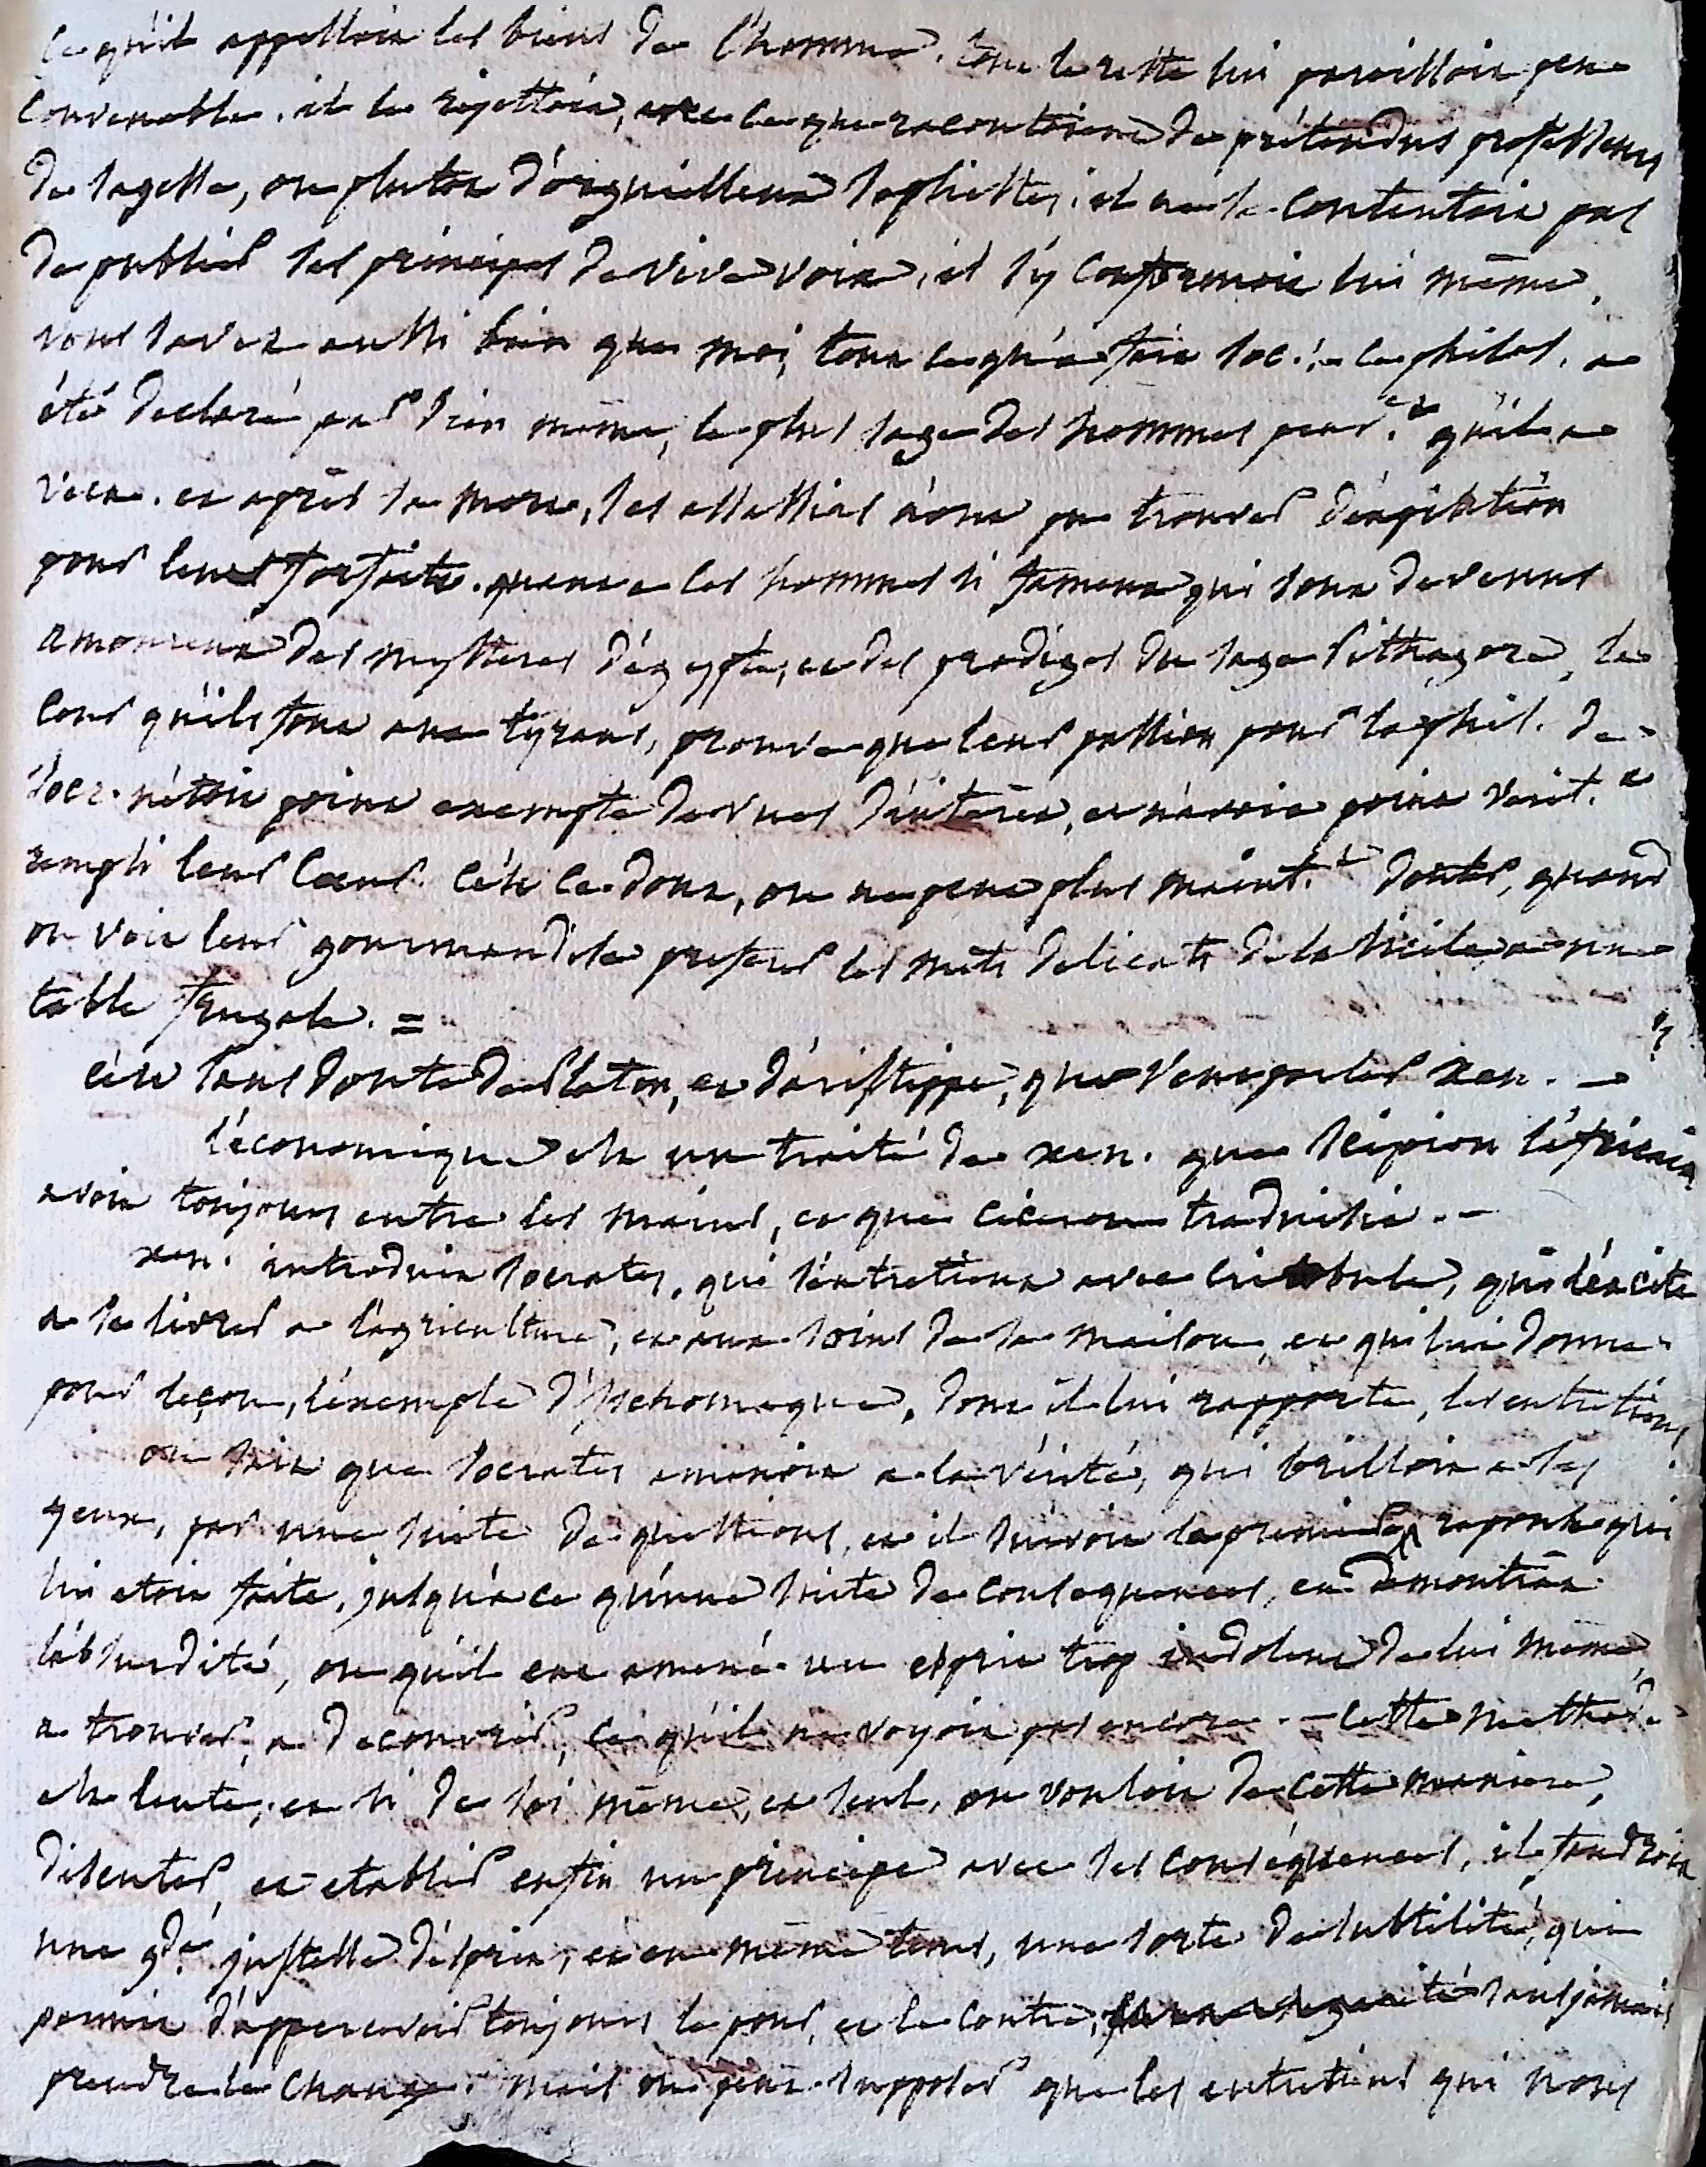 ce qu'il appelloit les biens de l'homme. tout le reste lui paroissoit peu
convenable. il le rejettoit, avec ce que racontoient de prétendus professeurs
de sagesse, ou plutot d'orgueilleux sophistes. il ne se contentoit pas
de publier ses principes de vive voix, il s'y conformoit lui même.
vous savez aussi bien que moi, tout ce qu'a fait soc. ; ce philos. a
été declaré par dieu meme, le plus sage des hommes pend.t qu'il a
vecu. et après sa mort, ses assassins n'ont pu trouver d'expiation
pour leurs forfaits. quant a ces hommes si fameux qui sont devenus
amoureux des mysteres d'égypte, et des prodiges du sage Pithagore, la
cour qu'ils font aux tyrans, prouve que leur passion pour la phil. de
socr. n'étoit point exempte de vues d'intérêt, et n'avoit point vérit.t
rempli leur coeur. c'est ce dont, on ne peut plus maint.t douter, quand
on voit leur gourmandise preferer les mets delicats de la sicile a une
table frugale. =
c'est sans doute de Platon, et d'aristippe, que veut parler xen. —
l'économique est un traité de xen. que scipion l'africain
avoit toujours entre les mains, et que ciceron traduisit. —
xen. introduit socrates, qui s'entretient avec critobule, qui l'excite
a se livrer a l'agriculture, et aux soins de sa maison, et qui lui donne
pour leçon, l'exemple d'ischomaque, dont il lui rapporte, les entretiens.
on sait que socrates amenoit a la vérité, qui brilloit a ses
yeux, par une suite de questions, et il suivoit la premiere reponse qui
lui etoit faite, jusqu'a ce qu'une suite de consequences, en démontrat
l'absurdité, ou qu'il eut amené un esprit trop indolent de lui même,
a trouver, a decouvrir, ce qu'il ne voyoit pas encore. — cette méthode
est lente, et si de soi même, et seul, on vouloit de cette maniere,
discuter, et etablir enfin un principe avec ses conséquences, il faudroit
une g.de justesse d'esprit, et en même tems, une sorte de subtilité, qui
permit d'appercevoir toujours le pour, et le contre, sans jamais
prendre le change. mais on peut supposer que les entretiens qui nous